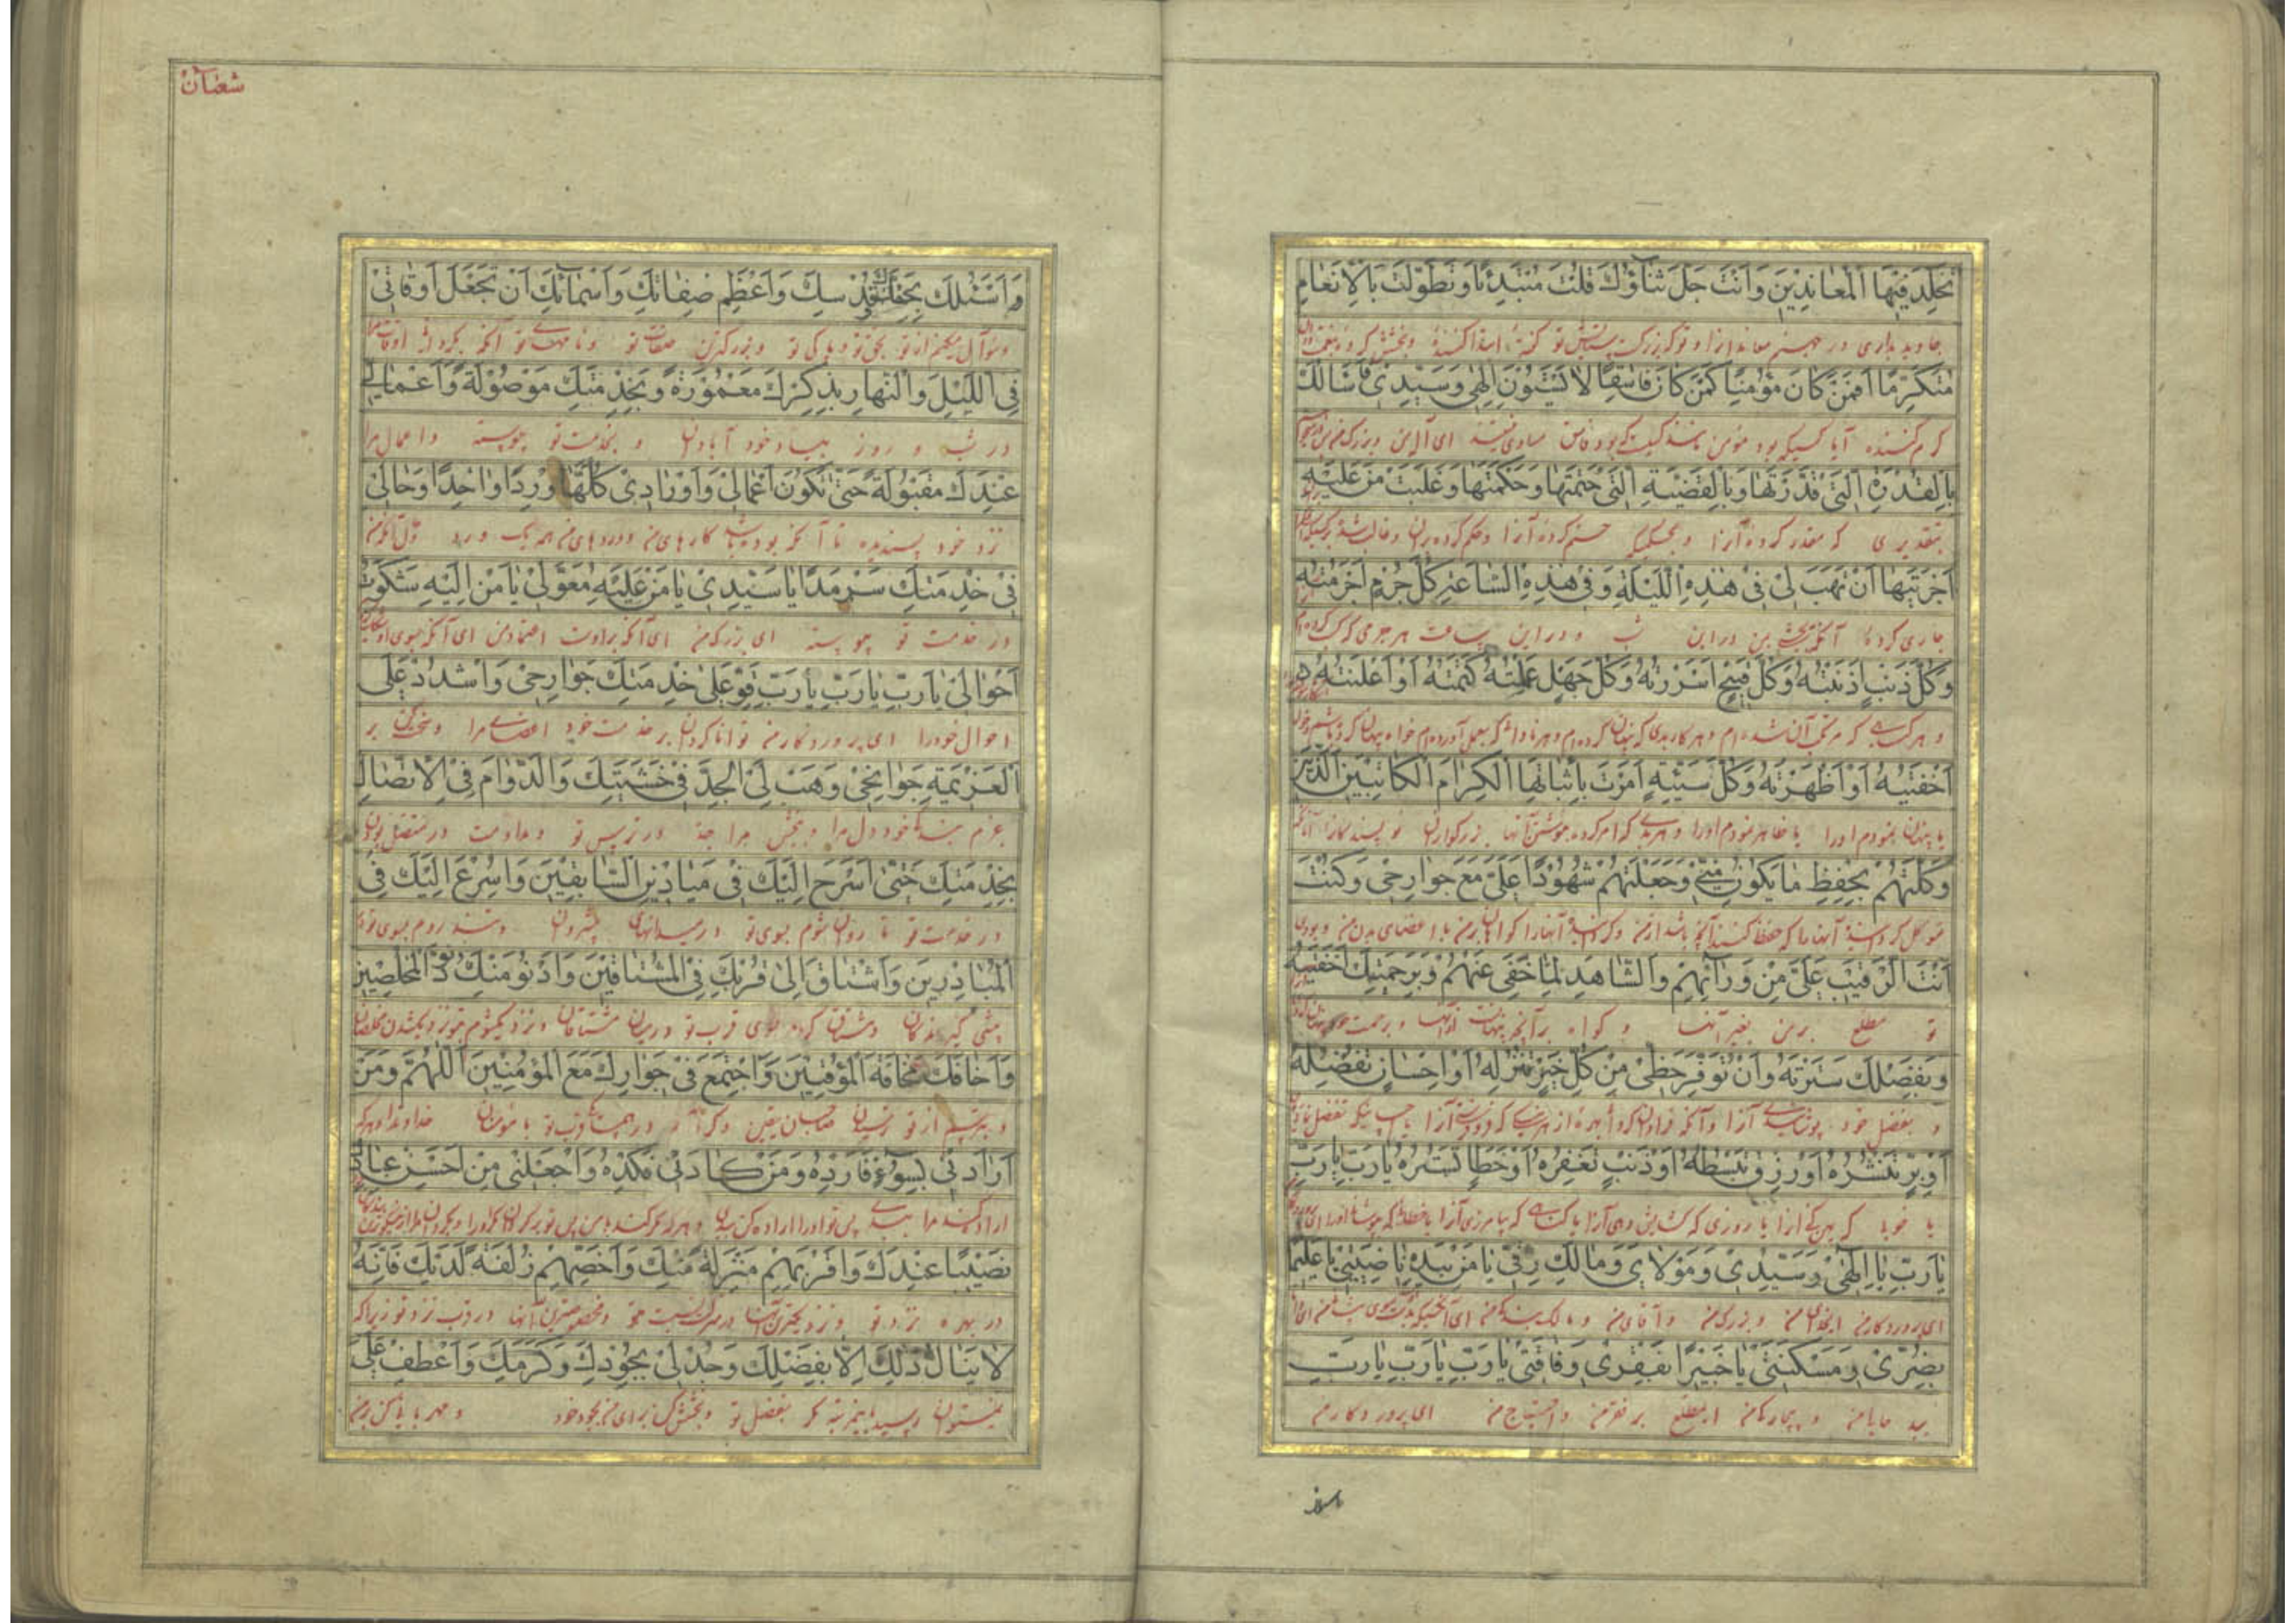 تُخَلِّدَ فِيهَا الْمُعَانِدِينَ وَاَنْتَ جَلَّ ثَنَاؤُكَ قُلْتَ مُبْتَدِئًا وَتَطَوَّلْتَ بِالْاِنْعَامِ
جاوید بداری در جهنم معاندانرا و تو که بزرگست ستایش تو گفتهٔ ابتدا کننده و بخشش کردهٔ بنعمت دادن
مُتَكَرِّمًا اَفَمَنْ كَانَ مُؤْمِنًا كَمَنْ كَانَ فَاسِقًا لَا يَسْتَوُونَ اِلٰهِي وَسَيِّدِي فَاَسْاَلُكَ
کرم کننده آیا کسیکه بود مؤمن مانند کسیست که بود فاسق مساوی نیستند ای اله من و بزرگ من
بِالْقُدْرَةِ الَّتِي قَدَّرْتَهَا وَبِالْقَضِيَّةِ الَّتِي حَتَمْتَهَا وَحَكَمْتَهَا وَغَلَبْتَ مَنْ عَلَيْهِ
بتقدیری که مقدر کردهٔ آنرا و بحکمی که حتم کردهٔ آنرا و حکم کردهٔ بران و غالب شدهٔ بر کسیکه
اَجْرَيْتَهَا اَنْ تَهَبَ لِي فِي هٰذِهِ اللَّيْلَةِ وَفِي هٰذِهِ السَّاعَةِ كُلَّ جُرْمٍ اَجْرَمْتُهُ
جاری کردهٔ آنکه ببخشی بمن در این شب و در این ساعت هر جرمی که کسب کرده‌ام
وَكُلَّ ذَنْبٍ اَذْنَبْتُهُ وَكُلَّ قَبِيحٍ اَسْرَرْتُهُ وَكُلَّ جَهْلٍ عَمِلْتُهُ كَتَمْتُهُ اَوْ اَعْلَنْتُهُ
و هر گناهی که مرتکب آن شده‌ام و هر کار بدی که پنهان کرده‌ام و هر نادانی که بعمل آورده‌ام خواه پنهان کرده باشم و خواه
اَخْفَيْتُهُ اَوْ اَظْهَرْتُهُ وَكُلَّ سَيِّئَةٍ اَمَرْتَ بِاِثْبَاتِهَا الْكِرَامَ الْكَاتِبِينَ الَّذِينَ
یا پنهان نمودم اورا یا ظاهر نمودم اورا و هر بدی که امر کرده بنوشتن آنها بزرگواران نویسندگانرا آنانکه
وَكَّلْتَهُمْ بِحِفْظِ مَا يَكُونُ مِنِّي وَجَعَلْتَهُمْ شُهُودًا عَلَيَّ مَعَ جَوَارِحِي وَكُنْتَ
موکل گردانیدهٔ آنها را که حفظ کنند آنچه باشد از من و گردانیدهٔ آنها را گواهان بر من با اعضای بدن من و بودی
اَنْتَ الرَّقِيبَ عَلَيَّ مِنْ وَرَائِهِمْ وَالشَّاهِدَ لِمَا خَفِيَ عَنْهُمْ وَبِرَحْمَتِكَ اَخْفَيْتَهُ
تو مطلع بر من بغیر آنها و گواه بر آنچه پنهانست از آنها و برحمت خود
وَبِفَضْلِكَ سَتَرْتَهُ وَاَنْ تُوَفِّرَ حَظِّي مِنْ كُلِّ خَيْرٍ تُنْزِلُهُ اَوْ اِحْسَانٍ تُفْضِلُهُ
و بفضل خود پوشانیدهٔ آنرا و آنکه فراوان گردانی بهره از هر نیکی که فرو فرستی آنرا یا احسانیکه تفضل نمائی
اَوْ بِرٍّ تَنْشُرُهُ اَوْ رِزْقٍ تَبْسُطُهُ اَوْ ذَنْبٍ تَغْفِرُهُ اَوْ خَطَاٍ تَسْتُرُهُ يَا رَبِّ يَا رَبِّ
یا خوبی که پهن کنی آنرا یا روزی که گشایش دهی آنرا یا گناهی که بیامرزی آنرا یا خطائیکه بپوشانی اورا ای
يَا رَبِّ يَا اِلٰهِي وَسَيِّدِي وَمَوْلَايَ وَمَالِكَ رِقِّي يَا مَنْ بِيَدِهِ نَاصِيَتِي يَا عَلِيمًا
ای پروردگار من ای خدای من و بزرگ من و آقای من و مالک بندگی من ای آنکسیکه بدست اوست موی پیشانی من ای دانا
بِضُرِّي وَمَسْكَنَتِي يَا خَبِيرًا بِفَقْرِي وَفَاقَتِي يَا رَبِّ يَا رَبِّ يَا رَبِّ
ببد حالی من و بیچارگی من ای مطلع بر فقر من و احتیاج من ای پروردگار من
شعبان
وَاَسْئَلُكَ بِحَقِّكَ وَقُدْسِكَ وَاَعْظَمِ صِفَاتِكَ وَاَسْمَائِكَ اَنْ تَجْعَلَ اَوْقَاتِي
و سؤال میکنم از تو بحق تو و پاکی تو و بزرگترین صفات تو و نامهای تو آنکه بگردانی اوقات مرا
فِي اللَّيْلِ وَالنَّهَارِ بِذِكْرِكَ مَعْمُورَةً وَبِخِدْمَتِكَ مَوْصُولَةً وَاَعْمَالِي
در شب و روز بیاد خود آبادان و بخدمت تو پیوسته و اعمال مرا
عِنْدَكَ مَقْبُولَةً حَتَّى تَكُونَ اَعْمَالِي وَاَوْرَادِي كُلُّهَا وِرْدًا وَاحِدًا وَحَالِي
نزد خود پسندیده تا آنکه بوده باشد کارهای من و وردهای من همه یک ورد
فِي خِدْمَتِكَ سَرْمَدًا يَا سَيِّدِي يَا مَنْ عَلَيْهِ مُعَوَّلِي يَا مَنْ اِلَيْهِ شَكَوْتُ
در خدمت تو پیوسته ای بزرگ من ای آنکه بر اوست اعتماد من ای آنکه بسوی او
اَحْوَالِي يَا رَبِّ يَا رَبِّ يَا رَبِّ قَوِّ عَلَى خِدْمَتِكَ جَوَارِحِي وَاشْدُدْ عَلَى
احوال خود را ای پروردگار من توانا گردان بر خدمت خود اعضای مرا و محکم کن بر
الْعَزِيمَةِ جَوَانِحِي وَهَبْ لِيَ الْجِدَّ فِي خَشْيَتِكَ وَالدَّوَامَ فِي الْاِتِّصَالِ
عزم بندگی خود دل مرا و ببخش مرا جد در ترس تو و مداومت در متصل بودن
بِخِدْمَتِكَ حَتَّى اَسْرَحَ اِلَيْكَ فِي مَيَادِينِ السَّابِقِينَ وَاُسْرِعَ اِلَيْكَ فِي
در خدمت تو تا روان شوم بسوی تو در میدانهای پیشروان و تند روم بسوی تو
الْمُبَادِرِينَ وَاَشْتَاقَ اِلَى قُرْبِكَ فِي الْمُشْتَاقِينَ وَاَدْنُوَ مِنْكَ دُنُوَّ الْمُخْلِصِينَ
پیشی گیرندگان و مشتاق گردم بسوی قرب تو در میان مشتاقان و نزدیک شوم بتو نزدیک شدن مخلصان
وَاَخَافَكَ مَخَافَةَ الْمُوقِنِينَ وَاَجْتَمِعَ فِي جَوَارِكَ مَعَ الْمُؤْمِنِينَ اَللّٰهُمَّ وَمَنْ
و بترسم از تو ترسیدن صاحبان یقین و گرد آیم در همسایگی قرب تو با مؤمنان خداوندا و هر که
اَرَادَنِي بِسُوءٍ فَاَرِدْهُ وَمَنْ كَادَنِي فَكِدْهُ وَاجْعَلْنِي مِنْ اَحْسَنِ عِبَادِكَ
اراده کند مرا ببدی پس تو اورا اراده کن بدان و هر که مکر کند با من پس تو برگردان مکر اورا و بگردان مرا از نیکوترین بندگان
نَصِيبًا عِنْدَكَ وَاَقْرَبِهِمْ مَنْزِلَةً مِنْكَ وَاَخَصِّهِمْ زُلْفَةً لَدَيْكَ فَاِنَّهُ
در بهره نزد تو و نزدیکترین آنها در منزلت نسبت بتو و مخصوصترین آنها در قرب نزد تو زیرا که
لَا يُنَالُ ذٰلِكَ اِلَّا بِفَضْلِكَ وَجُدْ لِي بِجُودِكَ وَكَرَمِكَ وَاعْطِفْ عَلَيَّ
نمیتوان رسید باینمرتبه مگر بفضل تو و بخشش کن برای من بجود خود و مهربانی کن بر من